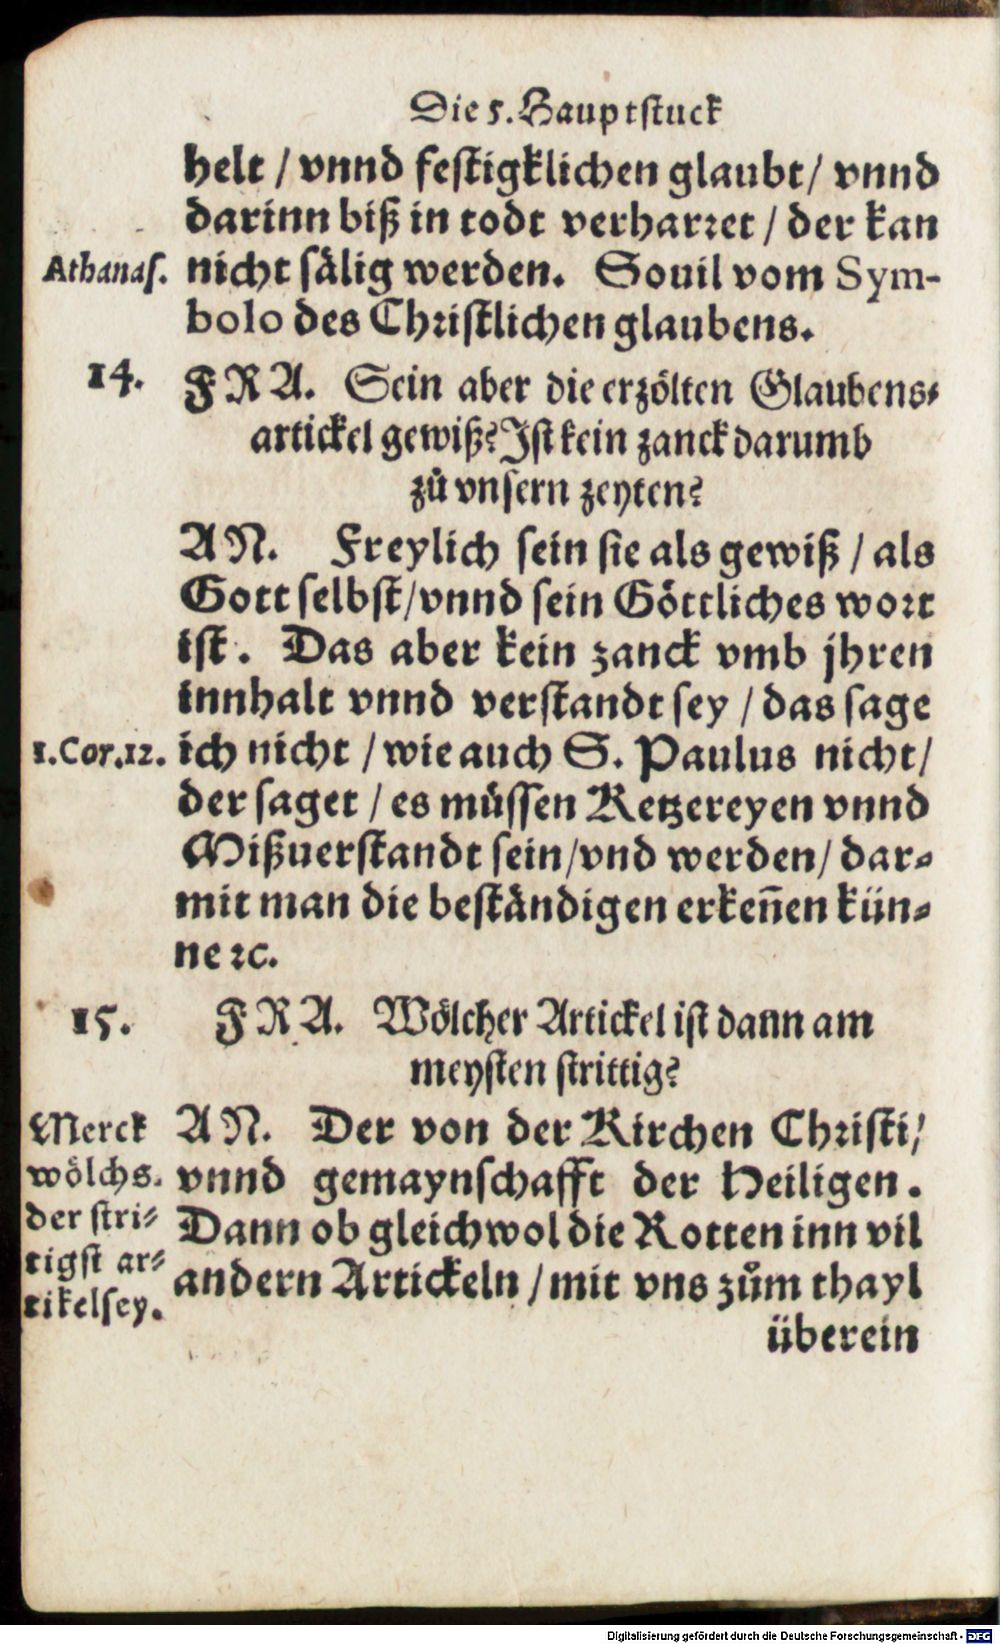 Die 5. Hauptstuck
helt / vnnd festigklichen glaubt / vnnd
darinn biß in todt verharret / der kan
Athanas. nicht sälig werden. Souil vom Sym-
bolo des Christlichen glaubens.
14. FRA. Sein aber die erzölten Glaubens-
artickel gewiß? Ist kein zanck darumb
zů vnsern zeyten?
AN. Freylich sein sie als gewiß / als
Gott selbst / vnnd sein Göttliches wort
ist. Das aber kein zanck vmb jhren
innhalt vnnd verstandt sey / das sage
1. Cor. 12. ich nicht / wie auch S. Paulus nicht /
der saget / es müssen Ketzereyen vnnd
Mißuerstandt sein / vnd werden / dar-
mit man die beständigen erkeñen kün-
ne ꝛc.
15. FRA. Wölcher Artickel ist dann am
meysten strittig?
AN. Der von der Kirchen Christi /
vnnd gemaynschafft der Heiligen.
Dann ob gleichwol die Rotten inn vil
andern Artickeln / mit vns zům thayl
überein
Merck
wölchs.
der stri-
tigst ar-
tikel sey.
Digitalisierung gefördert durch die Deutsche Forschungsgemeinschaft - DFG